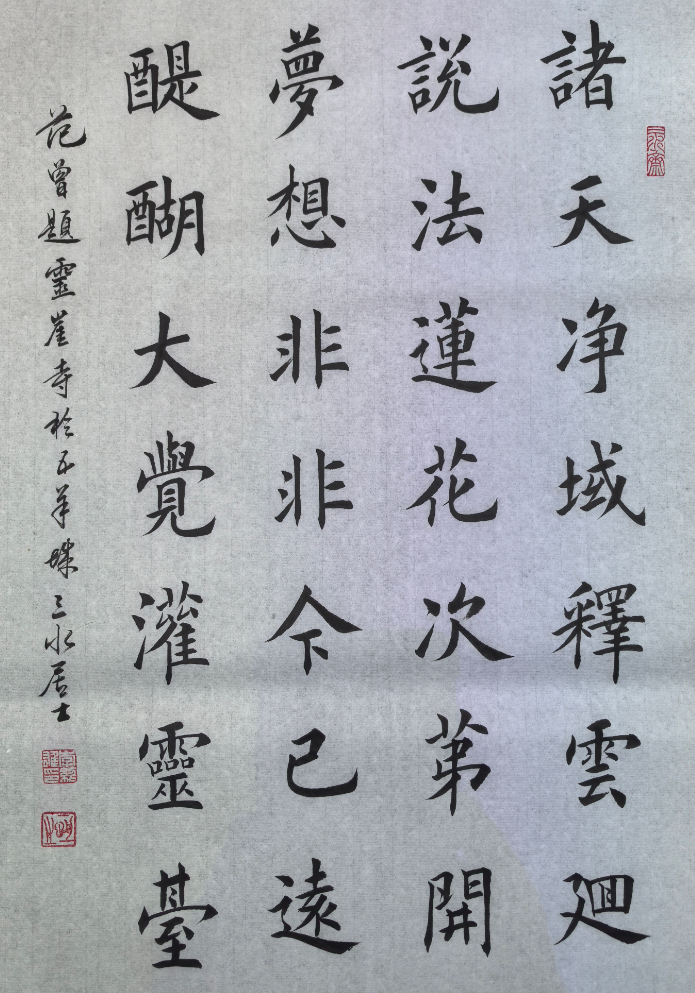 諸天净域釋雲廻
説法蓮花次苐開
夢想非非今已遠
醍醐大覺灌靈臺
范曾題靈崖寺於五羊城三水居士